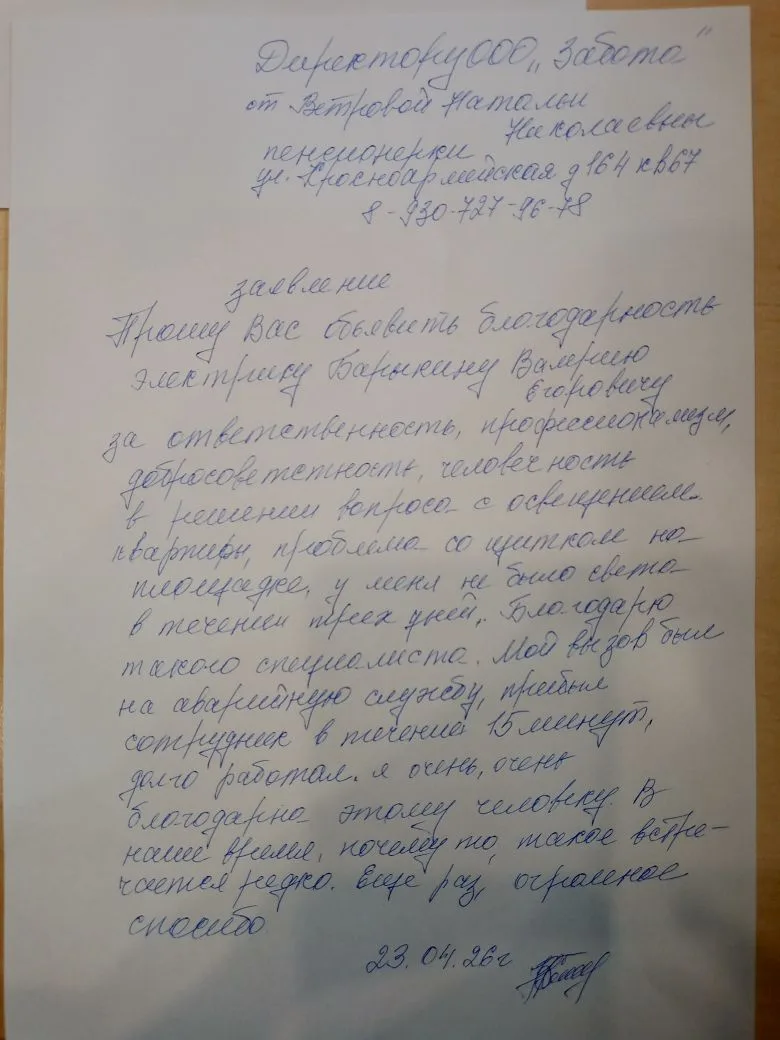 Директору ООО „Забота"
от Ветровой Натальи
Николаевны
пенсионерки
ул. Красноармейская д 164 кв 67
8-930-727-96-78
заявление
Прошу Вас обьявить благодарность
электрику Барыкину Валерию
Егоровичу
за ответственность, профессионализм,
добросоветстность, человечность
в решении вопроса с освещением
квартиры, проблема со щитком на
площадке, у меня не было света
в течении трех дней. Благодарю
такого специалиста. Мой вызов был
на аварийную службу, прибыл
сотрудник в течении 15 минут,
долго работал. я очень, очень
благодарна этому человеку. В
наше время, почему то, такое встре-
чается редко. Еще раз, огромное
спасибо
23.04.26г